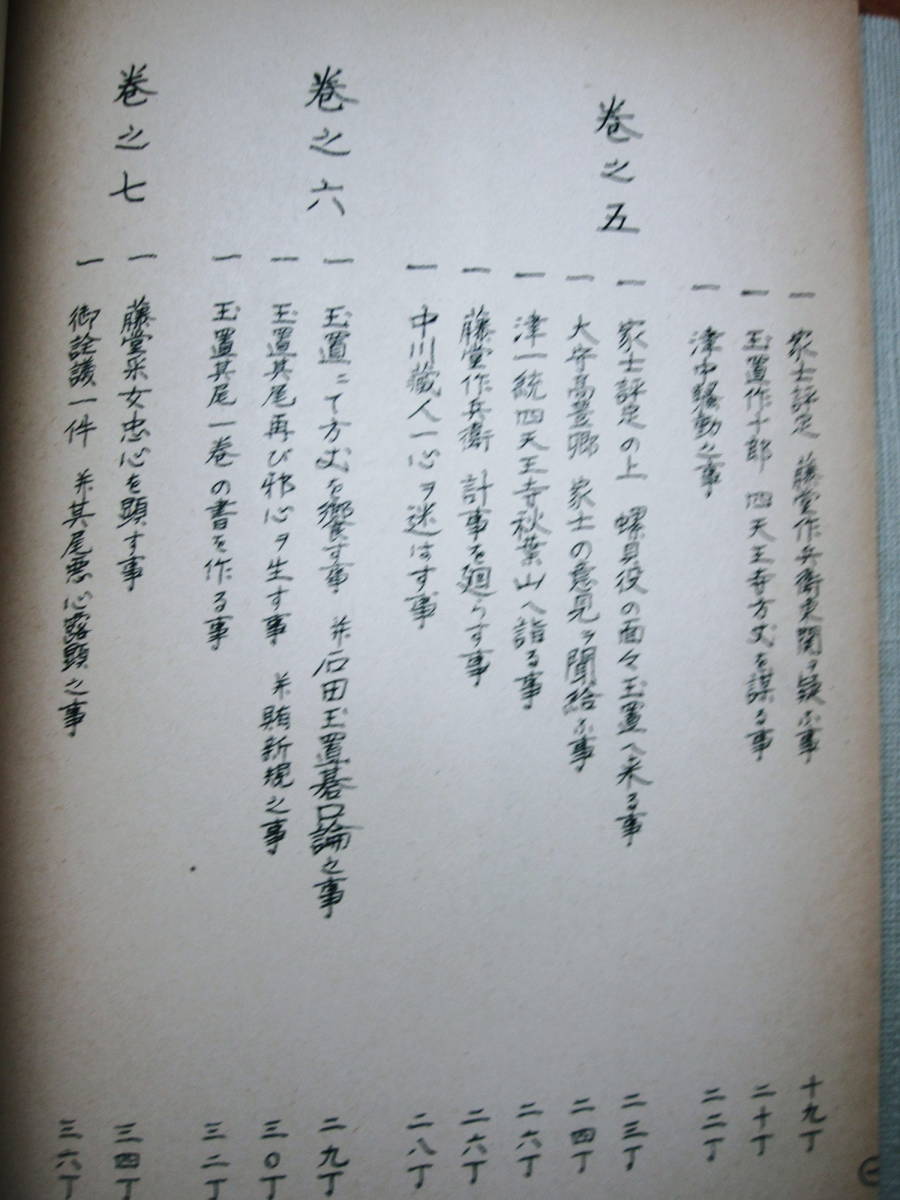 一 家士評定 藤堂作兵衛東関ヲ疑ふ事 十九丁
一 玉置作十郎 四天王寺方丈を謀る事 二十丁
一 津中騒動之事 二二丁
巻之五
一 家士評定の上 螺貝役の面々玉置へ来る事 二三丁
一 大守高豊郷 家士の意見ヲ聞給ふ事 二四丁
一 津一統四天王寺秋葉山へ詣る事 二六丁
一 藤堂作兵衛 計事を廻らす事 二六丁
一 中川蔵人一心ヲ迷はす事 二八丁
巻之六
一 玉置ニて方丈を饗す事 并石田玉置碁口論之事 二九丁
一 玉置其尾再び邪心ヲ生す事 并賄新規之事 三〇丁
一 玉置其尾一巻の書を作る事 三二丁
巻之七
一 藤堂采女忠心を顕す事 三四丁
一 御詮議一件 并其尾悪心露顕之事 三六丁